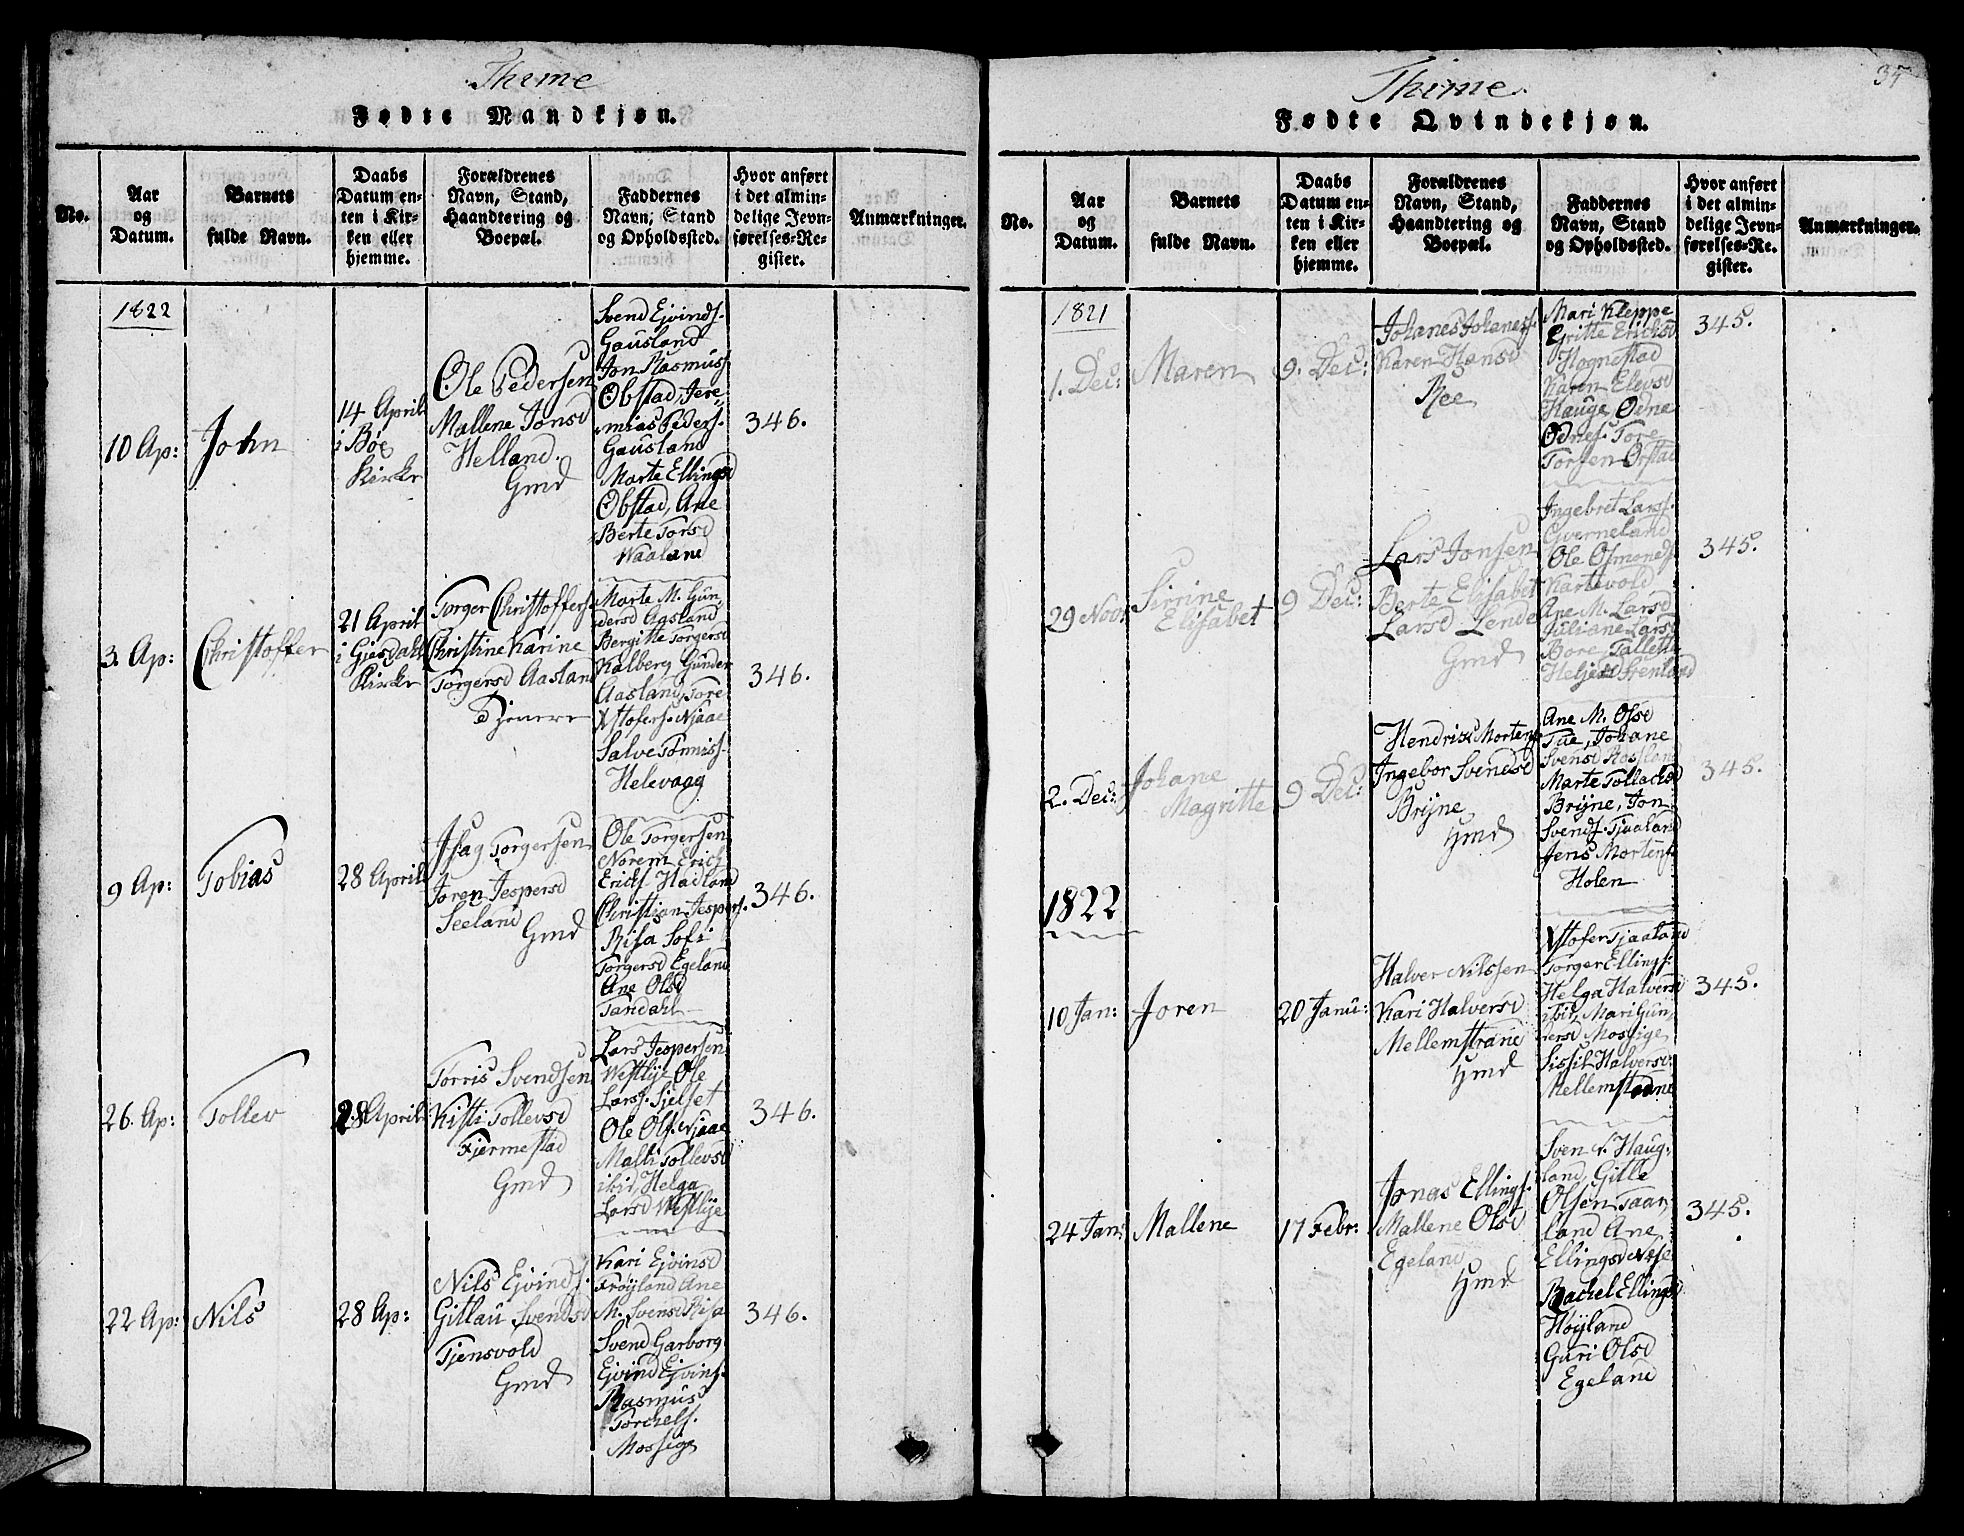 Thime
Fødte Mandkjøn.
No.
Aar
og
Datum.
Barnets
fulde Navn.
Daabs
Datum en-
ten i Kir-
ken eller
hjemme.
Forældrenes
Navn, Stand,
Haandtering og
Boepæl.
Faddernes
Navn, Stand
og Opholdssted.
Hvor anført
i det almin-
delige Jevn-
førelses-Re-
gister.
Anmærkninger.
1822
10 Ap:
John
14 April
i Böe
Kirke
Ole Pedersen
Mallene Jonsd
Helland.
Gmd
Svend Ejvinds.
Gausland
Jon Rasmuss
Obstad, Jere-
mias Peders.
Gausland
Marte Ellingsd
Obstad, Ane
Berte Torsd
Waaland
346.
3. Ap:
Christoffer
21 April
i Giesdahl
Kirke
Torger Christoffers.
Christine Karine
Torgersd Aasland
Tjenere
Marte M. Gun,
dersd Aasland
Bergitte Torgersd
Kalberg Gunder
Aasland, Tore
Xstofers. Njaae
Salve Tönniss.
Helevaag
346.
9 Ap:
Tobias
28 April
Isag Torgersen
Joren Jespersd
Seeland
Gmd
Ole Torgersen
Norem Erich
Erichs Hadland
Christian Jespers.
Risa Sofi
Torgersd Egeland
Ane Olsd
Tardahl
346.
26. Ap:
Tollev
28 April
Torris Svendsen
Kisti Tollevsd
Fjermestad
Gmd
Lars Jespersen
Westlye Ole
Larss. Sjelset
Ole Ols. Njaae
Malli Tollevsd
ibid, Helga
Larsd Westlye
346.
22 Ap:
Nils
28 Ap:
Nils Ejvinds.
Gitlau Svendsd
Tjensvold
Gmd
Kari Ejvinsd
Fröyland Ane
M. Svensd Risa
Svend Garborg
Ejvind Ejvins.
Rasmus
Torchels.
Mossige
346.
35
Thime.
Fødte Qvindekjøn.
No.
Aar
og
Datum.
Barnets
fulde Navn.
Daabs
Datum en-
ten i Kir-
ken eller
hjemme.
Forældrenes
Navn, Stand,
Haandtering og
Boepæl.
Faddernes
Navn, Stand
og Opholdssted.
Hvor anført
i det almin-
delige Jevn-
førelses-Re-
gister.
Anmærkninger.
1821
1. Dec:
Maren
9. Dec:
Johanes Johaness.
Karen Hansd
Ree
Mari Kleppe
Gritte Ericksd
Hognestad
Karen Elevsd
Hauge, Odne
Odnes. Tore
Torsen Orstad
345.
29 Nov:
Sirine
Elisabet
9 Dec:
Lars Jonsen
Berte Elisabet
Larsd Lende
Gmd
Ingebret Larss.
Qverneland
Ole Osmonds
Kartevold
Ane M. Larsd
Juliane Larsd
Bore, Tallette
345.
2. Dec:
Johane
Magritte
9 Dec:
Hendrik Mortens
Ingebor Svendsd
Bryne
Gmd
Ane M. Olsd
Tue, Johane
Svensd Rosland
Marte Tollachsd
Bryne, Jon
Svends. Tjaaland
Jens Mortens.
Holen
345.
1822
10 Jan:
Joren
20 Janu:
Halver Nilssen
Kari Halversd
Mellemstrand
Gmd
Xstofer Tjaaland
Torger Ellings.
Helga Halversd
ibid, Mari Gun,
dersd Mossige
Sissil Halversd:
Mellemstrand
345.
24 Jan:
Mallene
17 Febr:
Jonas Ellings.
Mallene Olsd
Egeland
Gmd
Sven v. Haug,
land, Gitle
Olsen Taar,
land Ane
Ellingsd Nese
Rachel Ellingsd
Höyland
Guri Olsd
Egeland
345.